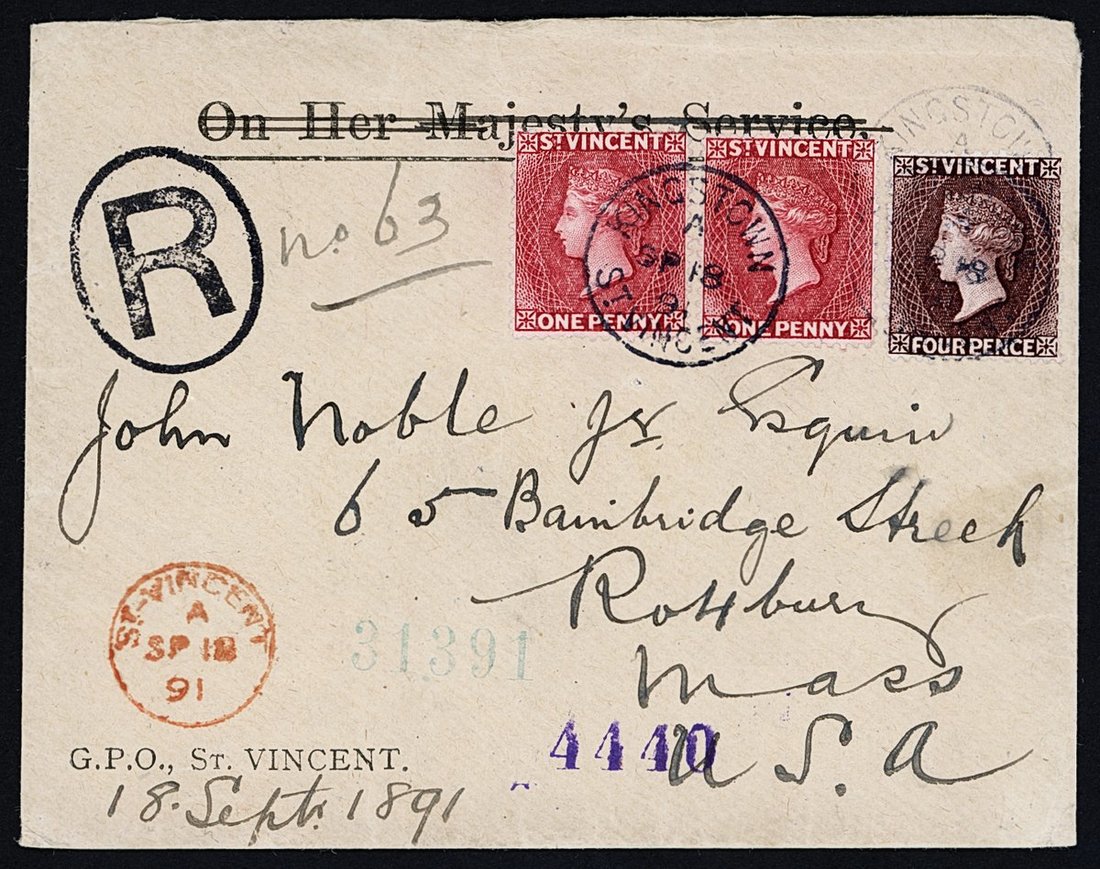 On Her Majesty's Service.
R
No 63
ST VINCENT
ONE PENNY
ST VINCENT
ONE PENNY
ST VINCENT
FOUR PENCE
KINGSTOWN
A
SP 18
91
ST. VINCENT
KINGSTOWN
A
John Noble Jr Esquire
65 Bainbridge Street
Roxbury
Mass
U.S.A
ST. VINCENT
A
SP 18
91
31391
4440
G.P.O., ST. VINCENT.
18. Septr. 1891